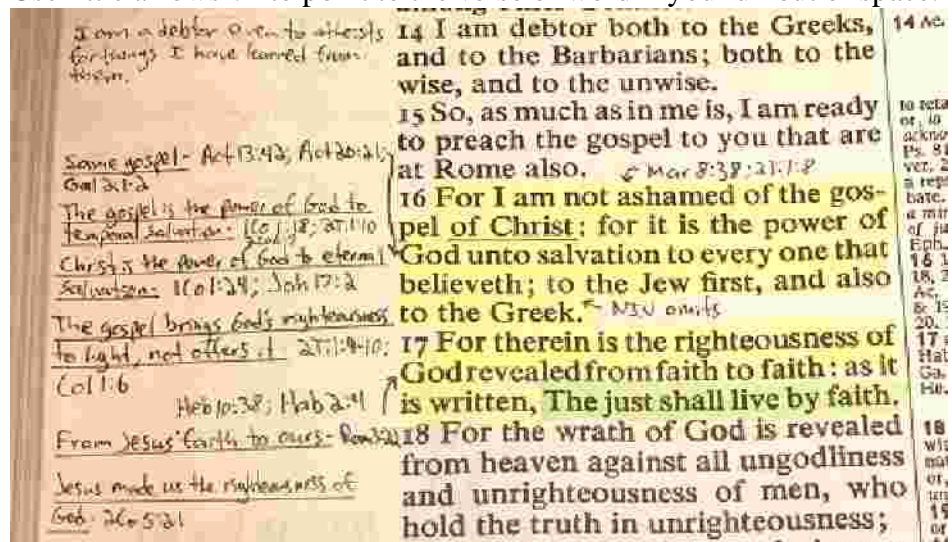 to point to the verse or word if you run out of space.
I am a debtor even to atheists
for things I have learned from
them.
Same gospel - Act 13:42; Act 20:21;
Gal 2:1-2
The gospel is the power of God to
temporal salvation - 1Co 1:18; 2Ti 1:10
Christ is the power of God to eternal
salvation - 1Co 1:24; Joh 17:2
The gospel brings God's righteousness
to light, not offers it 2Ti 1:9-10;
Col 1:6
Heb 10:38; Hab 2:4
From Jesus' faith to ours - Rom 3:22
Jesus made us the righteousness of
God - 2Co 5:21
14 I am debtor both to the Greeks,
and to the Barbarians; both to the
wise, and to the unwise.
15 So, as much as in me is, I am ready
to preach the gospel to you that are
at Rome also. Mar 8:38; 2Ti 1:8
16 For I am not ashamed of the gos-
pel of Christ: for it is the power of
God unto salvation to every one that
believeth; to the Jew first, and also
to the Greek. NIV omits
17 For therein is the righteousness of
God revealed from faith to faith: as it
is written, The just shall live by faith.
18 For the wrath of God is revealed
from heaven against all ungodliness
and unrighteousness of men, who
hold the truth in unrighteousness;
14
or,
Ps.
ver.
bate.
Eph.
16
18,
20.
17
Ga.
18